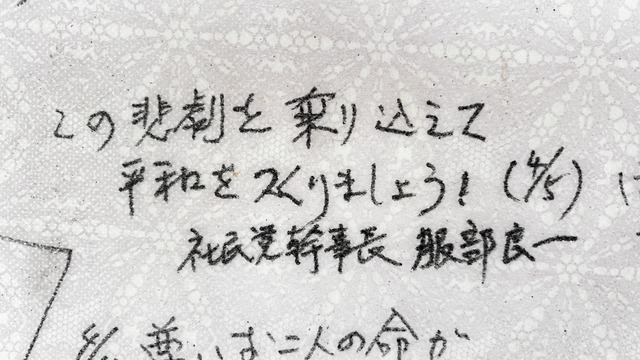 この悲劇を乗り込えて
平和をつくりましょう! (4/5)
社民党幹事長 服部良一
4/ 尊いお二人の命が